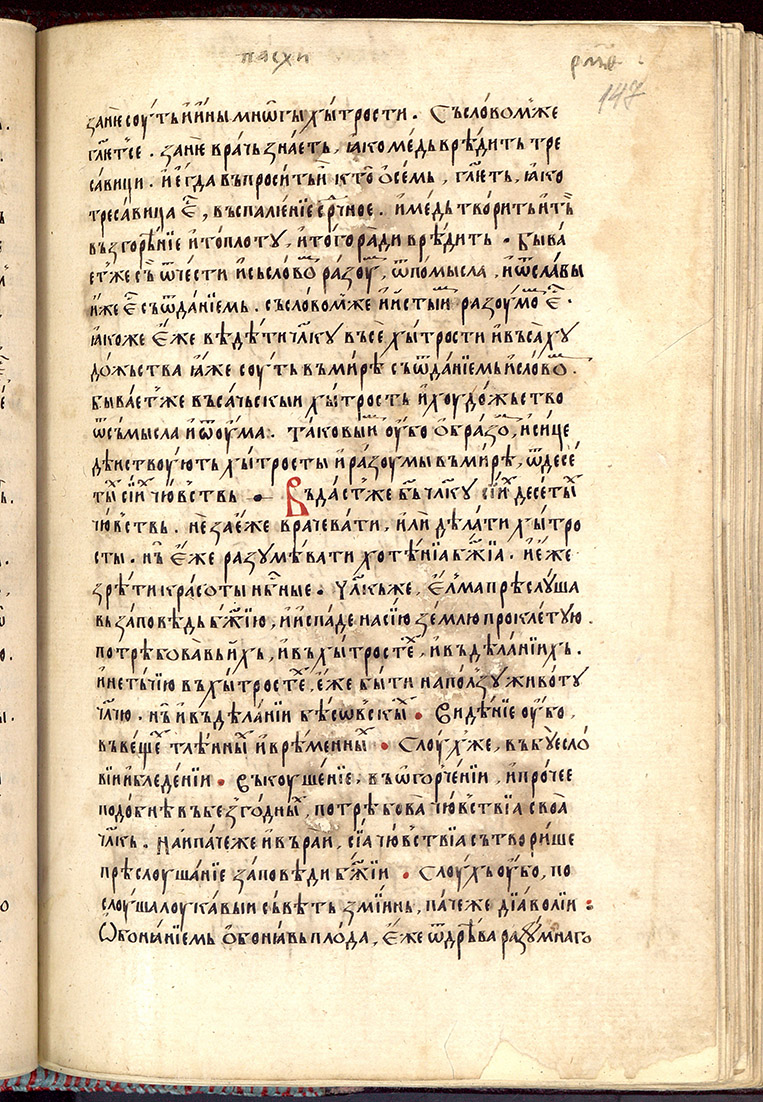 пасхи
рм҃ѳ
147
зан̾е соу́ть и҆ и҆ны мнѡ́гы хы́трости . Съ сло́вом же
гл҃ет се . зан̾е вра́чь зна́еть , ꙗ҆ко ме́дь врѣ́дить тре
са́вици . и҆ е҆гда̀ въпро́сить и҆ кто̀ ѻ҆ се́мь , гл҃еть , ꙗ҆ко
треса́вица є҆с҃ , въспале́нїе ср҃чное . и҆ ме́дь твори́ть и҆ тъ̀
възгорѣ́нїе и҆ топлотꙋ , и҆ того̀ ра́ди врѣ́дить . быва́
ет же съ ѿ че́сти и҆ сь сло́вом̾ ра́зоум , ѿ помысла , и҆ ѿ сла́вы
и҆же є҆с҃ съ ѿда́нїемь . съ сло́вом же и҆ и҆стыи ра́зоумом є҆с҃ .
ꙗ҆коже є҆же вѣ́дѣти чл҃кꙋ въсе хы́трости и҆ въса хꙋ
до́жьства ꙗ҆же соу́ть въ ми́рѣ съ ѿда́нїемь и҆ сло́вом .
быва́ет же въса́чьскыи хы́трость и҆ хоудо́жьство
ѿ съмысла и҆ ѿ оу҆ма̀ . та́ковыи оу҆бо ѻ҆бразом , и҆ си́це
дѣи́ствоують хы́тросты и҆ ра́зоумы въ ми́рѣ , ѿ десе́
тых сїи́х чю́вствь . Въда́ст же бг҃ь чл҃кꙋ сїи́х десе́тых
чю́вствь . не за є҆же врачева́ти , и҆ли дѣ́лати хы́тро
сты . нѫ є҆же разꙋмѣ́вати хотѣ́нїа бж҃їа . и҆ е҆же
зрѣ́ти красоты нб҃ные . Чл҃кь же , є҆лма прѣслꙋша
вь за́повѣдь бж҃їю , и҆ и҆спаде на сїю зе́млю проклѣ́тꙋю .
потрѣ́бова въ ни́хъ , и҆ въ хы́тростех , и҆ въ дѣ́ланїихъ .
и҆ не тъ́чїю въ хы́тростех , є҆же бы́ти на по́лзꙋ живо́тꙋ
чл҃чю . нѫ и҆ въ дѣ́ланїи бѣсѡ́вскых . Видѣ́нїе оу҆бо ,
въ ве́щех тлѣ́нных и҆ врѣ́менных . Слоух же , въ бꙋесло́
вїи и҆ бледе́нїи . Въкоуше́нїе , въ ѡ҆горче́нїи , и҆ про́чее
подо́бнѣ въ безго́дных , потрѣ́бова чю́вствїа своа̀
чл҃кь . На́ипаче же и҆ въ ра́и , сїа чю́вствїа сътвори́ше
прѣслоуша́нїе за́поведи бж҃їи . Слоу́хъ оу҆бо , по
слоуша лоука́выи съвѣ́ть змі́инь , па́че же дїа́волїи :
Ѡ҆боніа́нїемь ѻ҆боніавь пло́да , є҆же ѿ дрѣ́ва разꙋмнаго